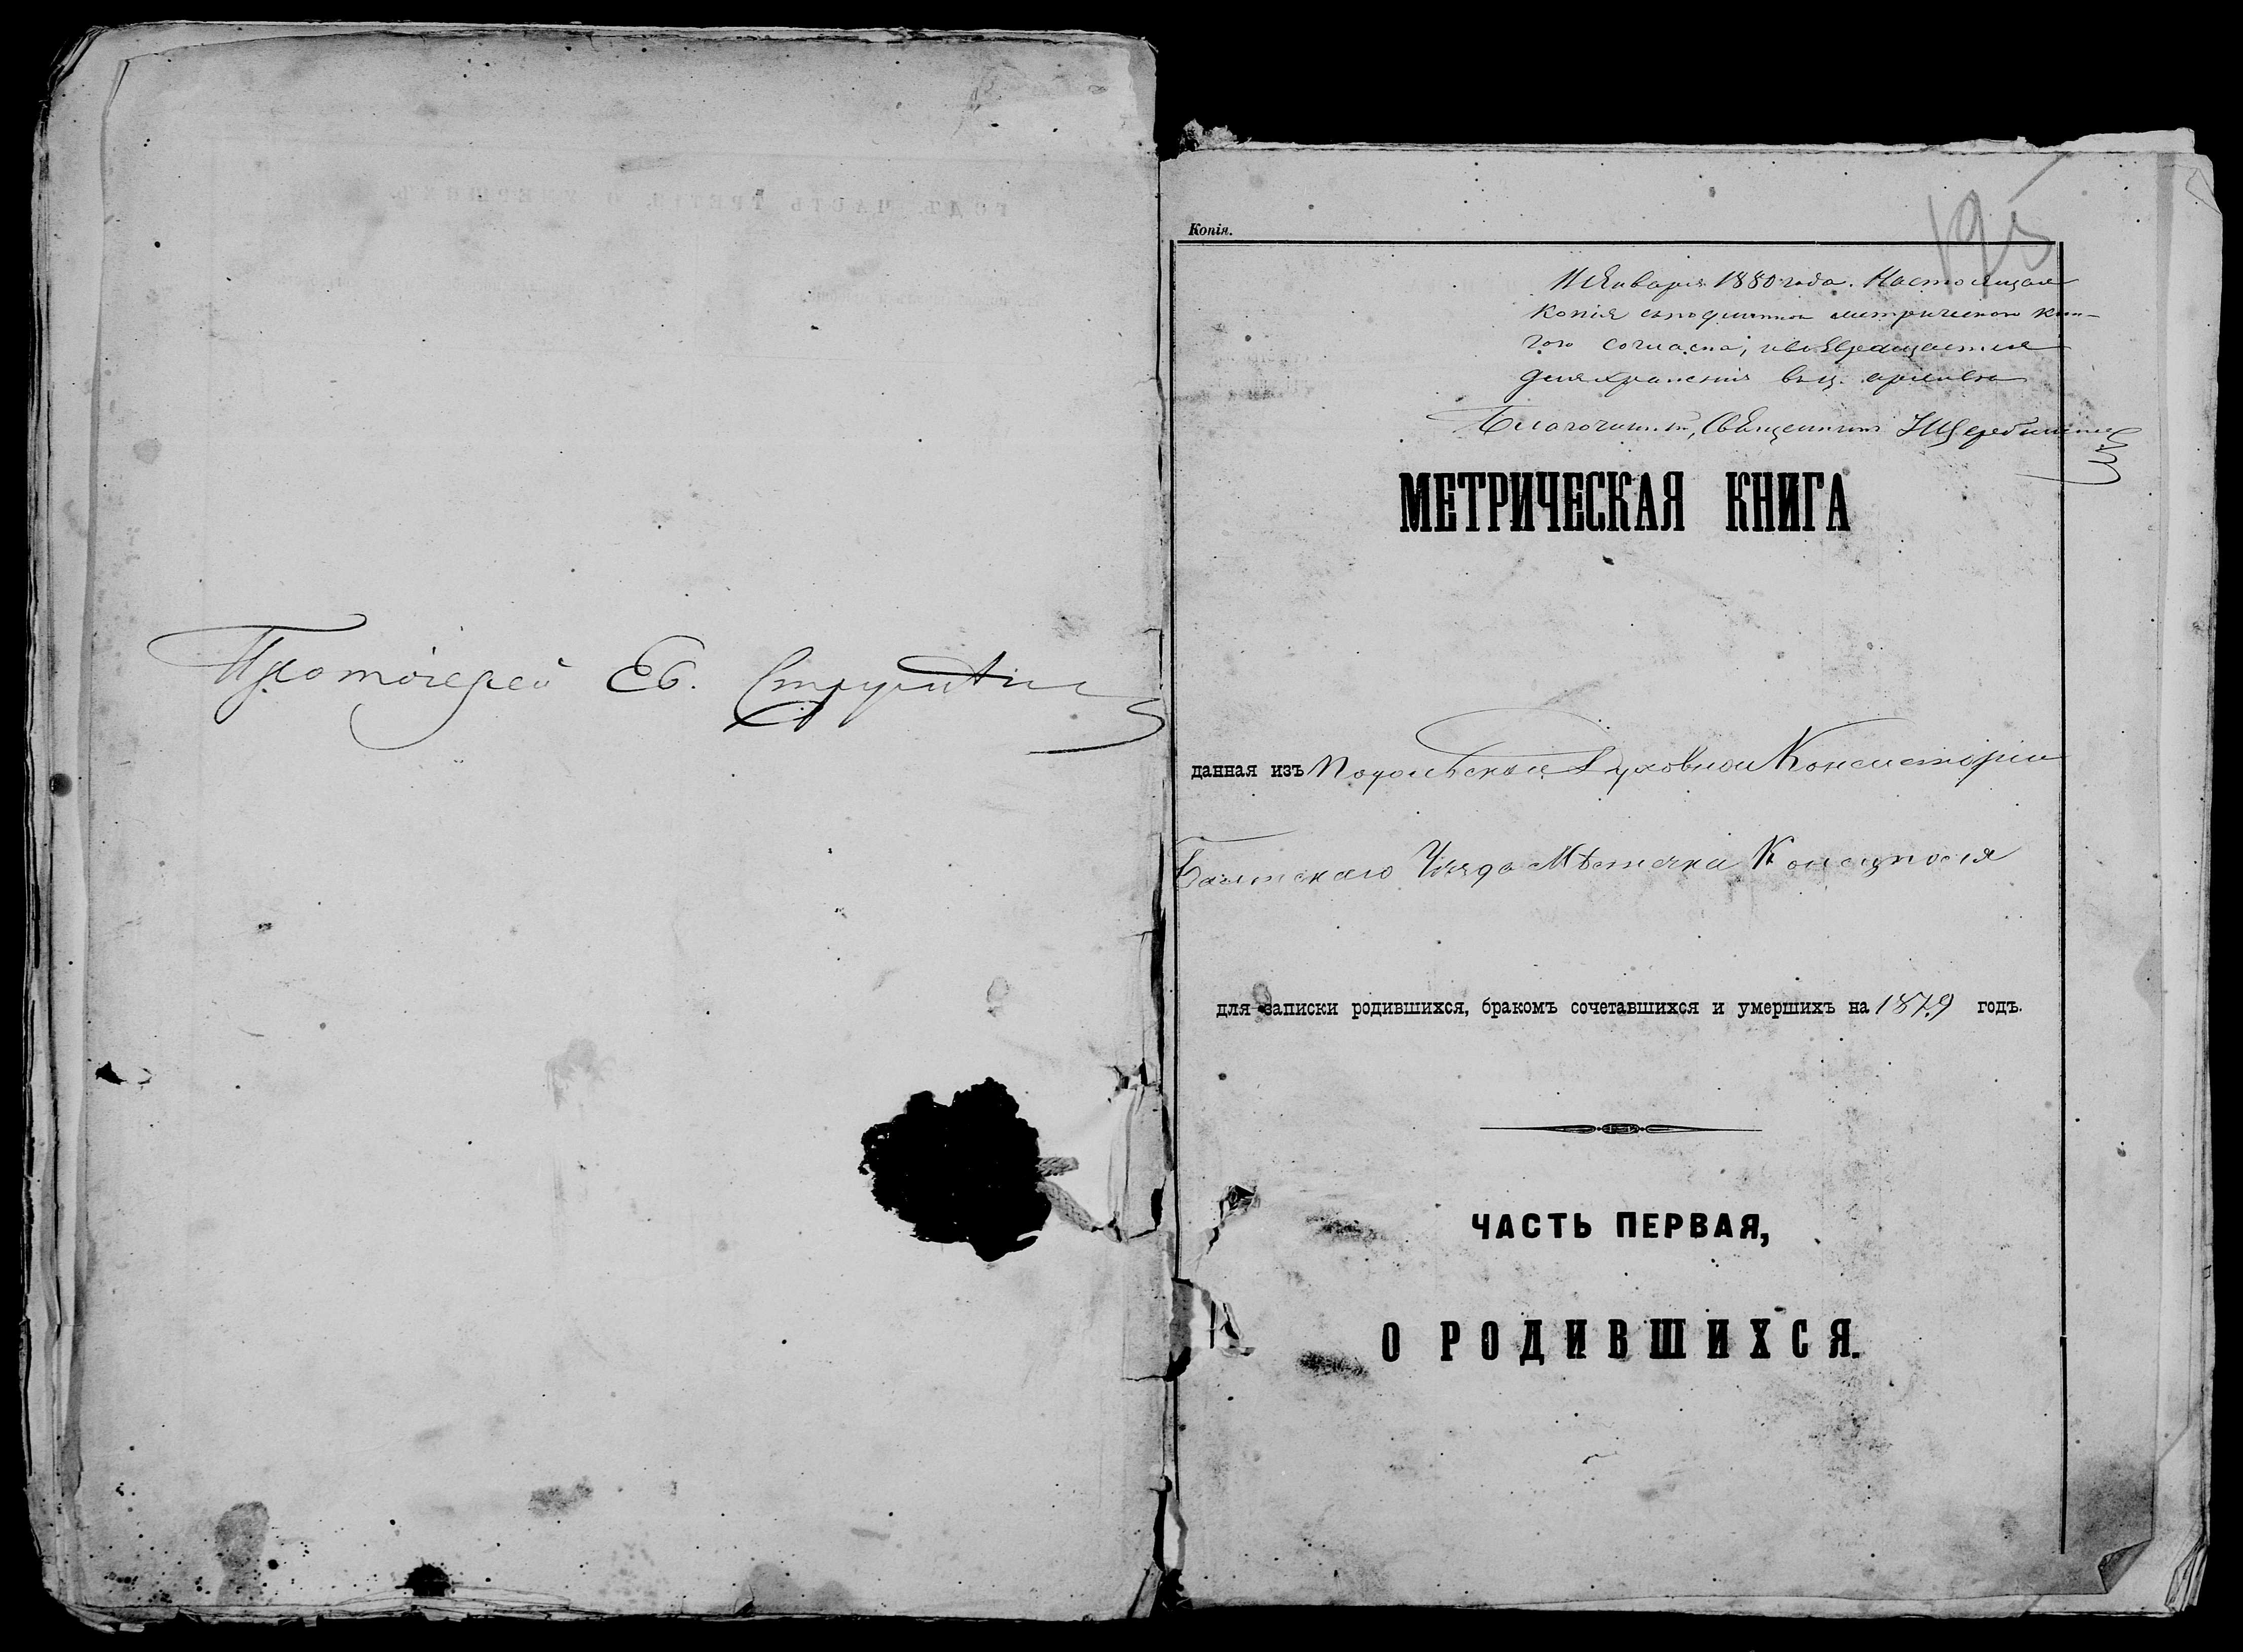 Протоіерей Ев.
195
Копія.
11 Января 1880 года. Настоящая
копія съ подлинною метрическою кни-
гою согласна, и возвращается
для хранения въ ц. архивъ
Благочинный, Священникъ
МЕТРИЧЕСКАЯ КНИГА
данная изъ Подольской Духовной Консисторіи
Балтскаго Уѣзда Мѣстечка Конецполя
для записки родившихся, бракомъ сочетавшихся и умершихъ на 1879 годъ.
ЧАСТЬ ПЕРВАЯ,
О РОДИВШИХСЯ.